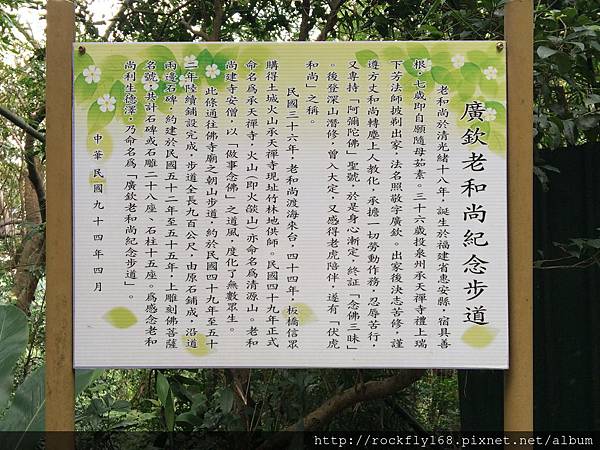 廣欽老和尚紀念步道
老和尚於清光緒十八年，誕生於福建省惠安縣，宿具善
根，七歲即自願隨母茹素。三十六歲投泉州承天禪寺禮上瑞
下芳法師披剃出家，法名照敬字廣欽。出家後決志苦修，謹
遵方丈和尚轉塵上人教化，承擔一切勞動作務，忍辱苦行，
又專持「阿彌陀佛」聖號，於是身心漸定，終証「念佛三昧」
。後登深山潛修，曾入大定，又感得老虎陪伴，遂有「伏虎
和尚」之稱。
民國三十六年，老和尚渡海來台，四十四年，板橋信眾
購得土城火山承天禪寺現址竹林地供師。民國四十九年正式
命名為承天禪寺，火山（即火燄山）亦命名為清源山。老和
尚建寺安僧，以「做事念佛」之道風，度化了無數眾生。
此條通往佛寺廟之朝山步道，約於民國四十九年至五十
二年陸續鋪設完成，步道全長九百公尺，由原石鋪成，沿道
兩邊石碑，約建於民國五十二年至五十五年，上雕刻佛菩薩
名號，共計石碑或石雕二十八座、石柱十五座。為感念老和
尚利生德澤，乃命名為「廣欽老和尚紀念步道」。
中華民國九十四年四月
http://rockfly168.pixnet.net/album